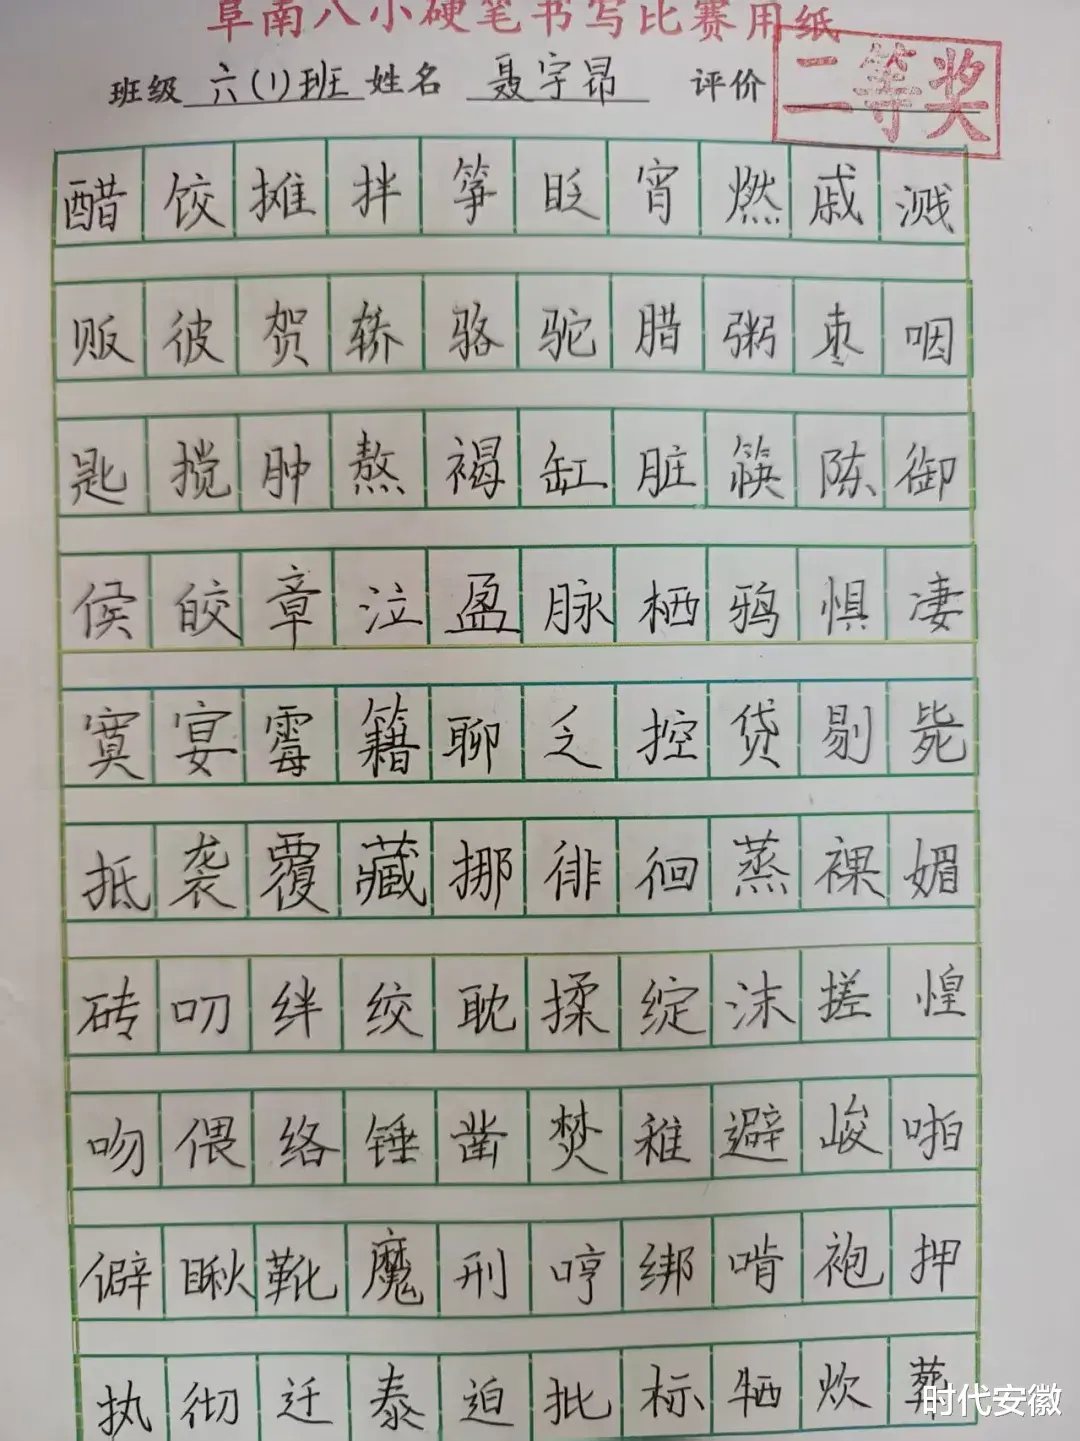 阜南八小硬笔书写比赛用纸
班级 六(1)班 姓名 聂宇昂 评价 二等奖
醋饺摊拌筝眨宵燃戚溅
贩彼贺轿骆驼腊粥枣咽
匙搅肿熬褐缸脏筷陈御
侯皎章泣盈脉栖鸦惧凄
寞宴霉籍聊乏控贷剔毙
抵袭覆藏挪徘徊蒸裸媚
砖叨绊绞耽揉绽沫搓惶
吻偎络锤凿焚稚避峻啪
僻瞅靴魔刑哼绑啃袍押
执彻迁泰迫批标牺炊葬
时代安徽